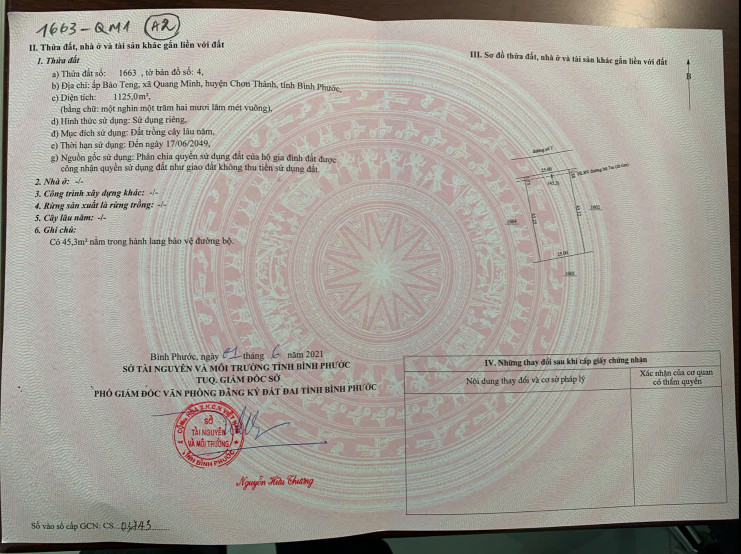 1663-QM1 A2
II. Thửa đất, nhà ở và tài sản khác gắn liền với đất
1. Thửa đất
a) Thửa đất số: 1663 , tờ bản đồ số: 4,
b) Địa chỉ: ấp Bào Teng, xã Quang Minh, huyện Chơn Thành, tỉnh Bình Phước,
c) Diện tích: 1125,0m²,
(bằng chữ: một nghìn một trăm hai mươi lăm mét vuông),
d) Hình thức sử dụng: Sử dụng riêng,
đ) Mục đích sử dụng: Đất trồng cây lâu năm,
e) Thời hạn sử dụng: Đến ngày 17/06/2049,
g) Nguồn gốc sử dụng: Phân chia quyền sử dụng đất của hộ gia đình đất được
công nhận quyền sử dụng đất như giao đất không thu tiền sử dụng đất.
2. Nhà ở: -/-
3. Công trình xây dựng khác: -/-
4. Rừng sản xuất là rừng trồng: -/-
5. Cây lâu năm: -/-
6. Ghi chú:
Có 45,3m² nằm trong hành lang bảo vệ đường bộ.
Bình Phước, ngày 01 tháng 6 năm 2021
SỞ TÀI NGUYÊN VÀ MÔI TRƯỜNG TỈNH BÌNH PHƯỚC
TUQ. GIÁM ĐỐC SỞ
PHÓ GIÁM ĐỐC VĂN PHÒNG ĐĂNG KÝ ĐẤT ĐAI TỈNH BÌNH PHƯỚC
CỘNG HÒA X.H.C.N VIỆT NAM
SỞ
TÀI NGUYÊN
VÀ MÔI TRƯỜNG
TỈNH BÌNH PHƯỚC
Nguyễn Hữu Thương
Số vào sổ cấp GCN: CS
III. Sơ đồ thửa đất, nhà ở và tài sản khác gắn liền với đất
B
25.00
1664
1662
25.00
IV. Những thay đổi sau khi cấp giấy chứng nhận
Nội dung thay đổi và cơ sở pháp lý
Xác nhận của cơ quan
có thẩm quyền